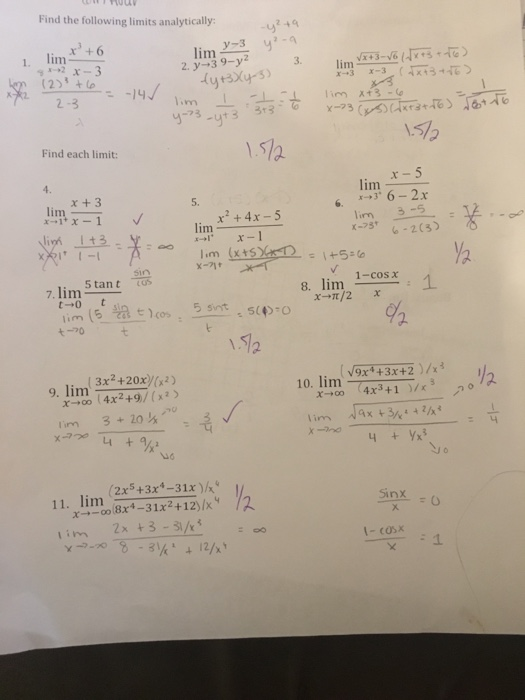 Find the following limits analytically:
-y² + 9
y² - 9
1. lim x→2 x³ + 6 / x - 3
lim x→2 (2)³ + 6 / 2-3 = -14 ✓
2. lim y→3 y-3 / 9-y²
-(y+3)(y-3)
lim y→3 1 / -y+3 = -1 / 3+3 = -1/6
1.5/2
3. lim x→3 √x+3-√6 / x-3 (√x+3 + √6) / (√x+3+√6)
lim x→3 x+3-6 / (x-3)(√x+3+√6) = 1 / √6+√6
1.5/2
Find each limit:
4. lim x→1⁺ x + 3 / x - 1 ✓
lim x→1⁺ 1+3 / 1-1 = ∞
5. lim x→1⁻ x² + 4x - 5 / x - 1
lim x→1⁻ (x+5)(x-1) / x-1 = 1+5=6
✓
6. lim x→3⁺ x - 5 / 6 - 2x
lim x→3⁺ 3-5 / 6-2(3) = -∞
1/2
7. lim t→0 5 tan t / t
sin / cos
lim t→0 (5 sin / cos t) cos / t = 5 sin t / t = 5(0)=0
1.5/2
8. lim x→π/2 1-cos x / x = 1
0/2
9. lim x→∞ (3x²+20x)/(x²) / (4x²+9)/(x²)
lim x→∞ 3 + 20/x →0 / 4 + 9/x² →0 = 3/4 ✓
10. lim x→∞ (√9x⁴+3x+2)/x³ / (4x³+1)/x³
1/2
lim x→∞ √9x + 3/x² + 2/x³ →0 / 4 + 1/x³ →0 = 1/4
11. lim x→-∞ (2x⁵+3x⁴-31x)/x⁴ / (8x⁴-31x²+12)/x⁴
1/2
lim x→-∞ 2x + 3 - 31/x³ / 8 - 31/x² + 12/x⁴ = ∞
sinx / x = 0
1-cosx / x = 1